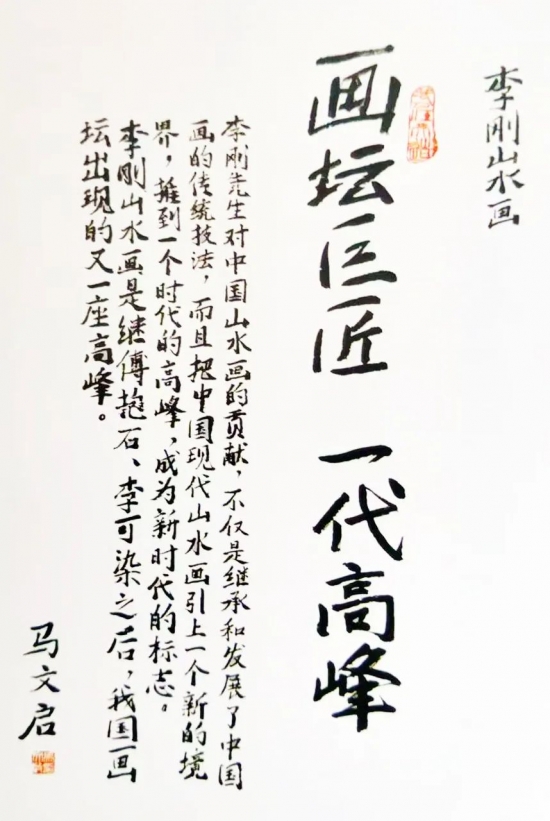 李刚山水画
画坛巨匠 一代高峰
李刚先生对中国山水画的贡献，不仅是继承和发展了中国
画的传统技法，而且把中国现代山水画引上一个新的境
界，推到一个时代的高峰，成为新时代的标志。
李刚山水画是继傅抱石、李可染之后，我国画
坛出现的又一座高峰。
马文启